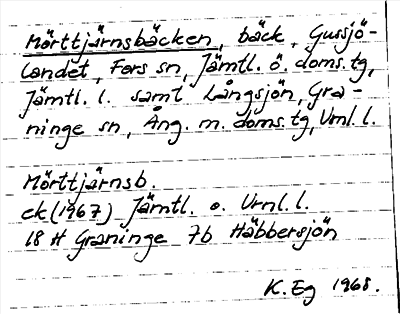 Mörttjärnsbäcken, bäck, Gussjö-
landet, Fors sn, Jämtl. ö. doms.tg,
Jämtl. l. samt Långsjön, Gra-
ninge sn, Ång. m. doms.tg, Vnl. l.
Mörttjärnsb.
ek (1967) Jämtl. o. Vrnl. l.
18 H Graninge 7b Häbbersjön
K. Eg 1968.